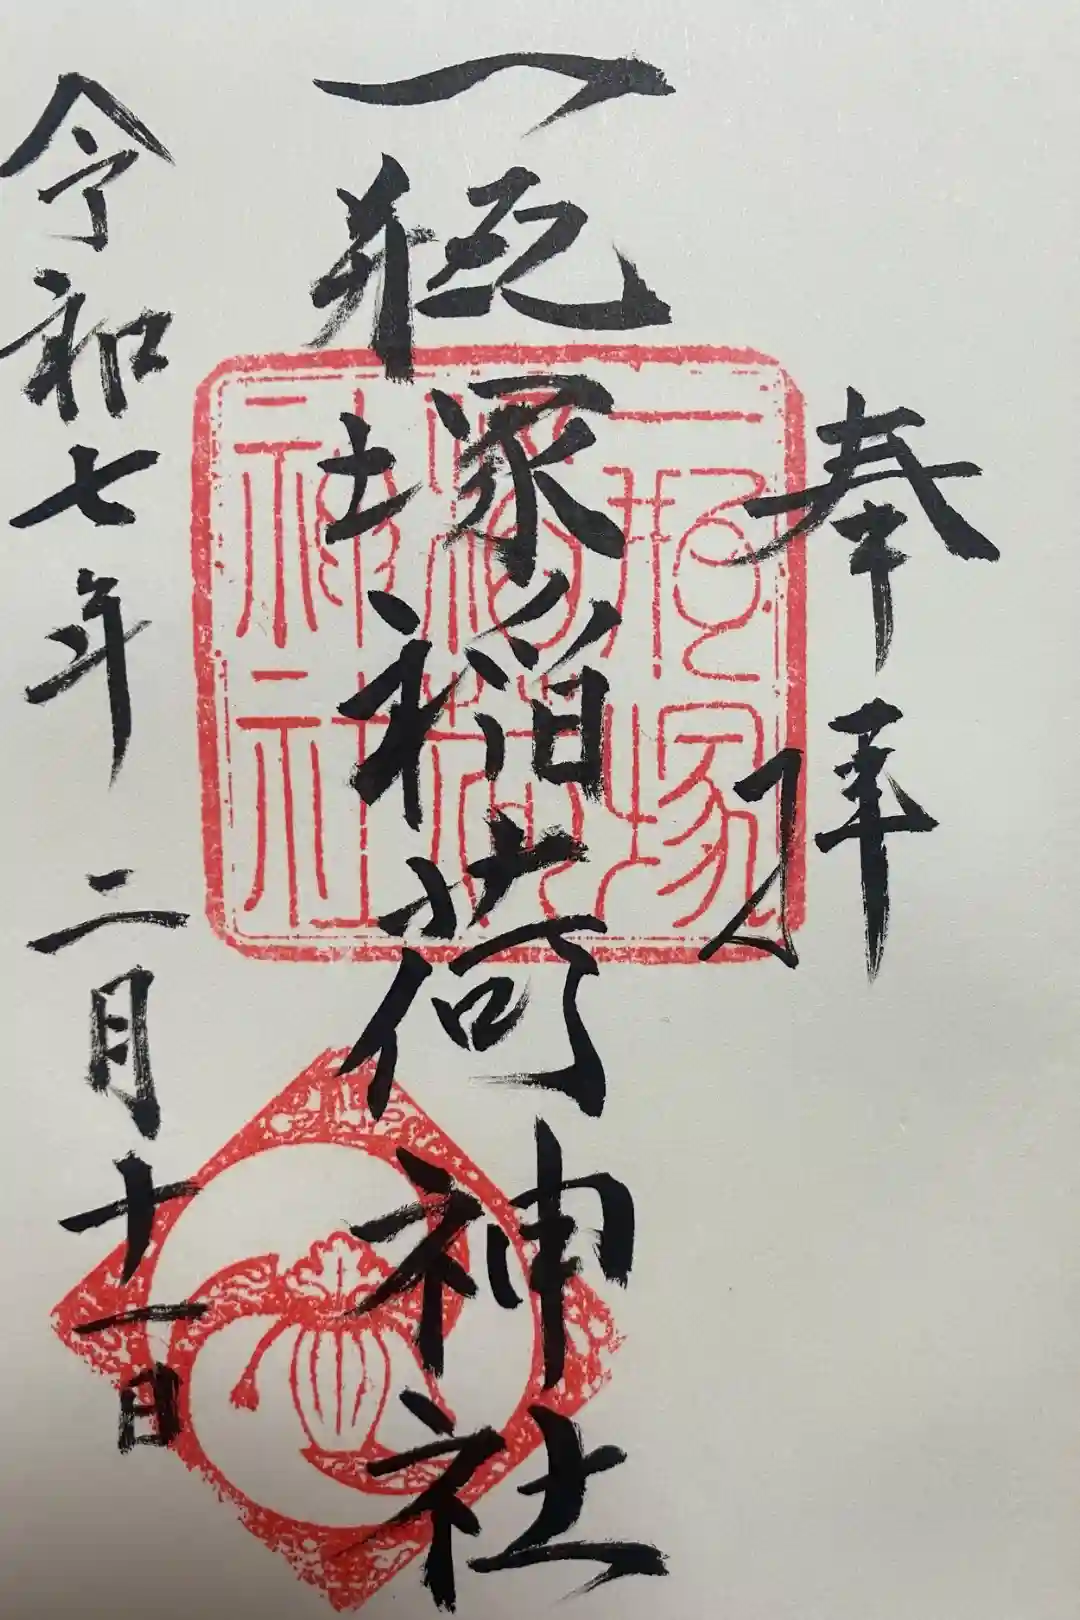 奉拝
一瓶塚稲荷神社
令和七年二月十一日
一瓶塚
稲荷
神社